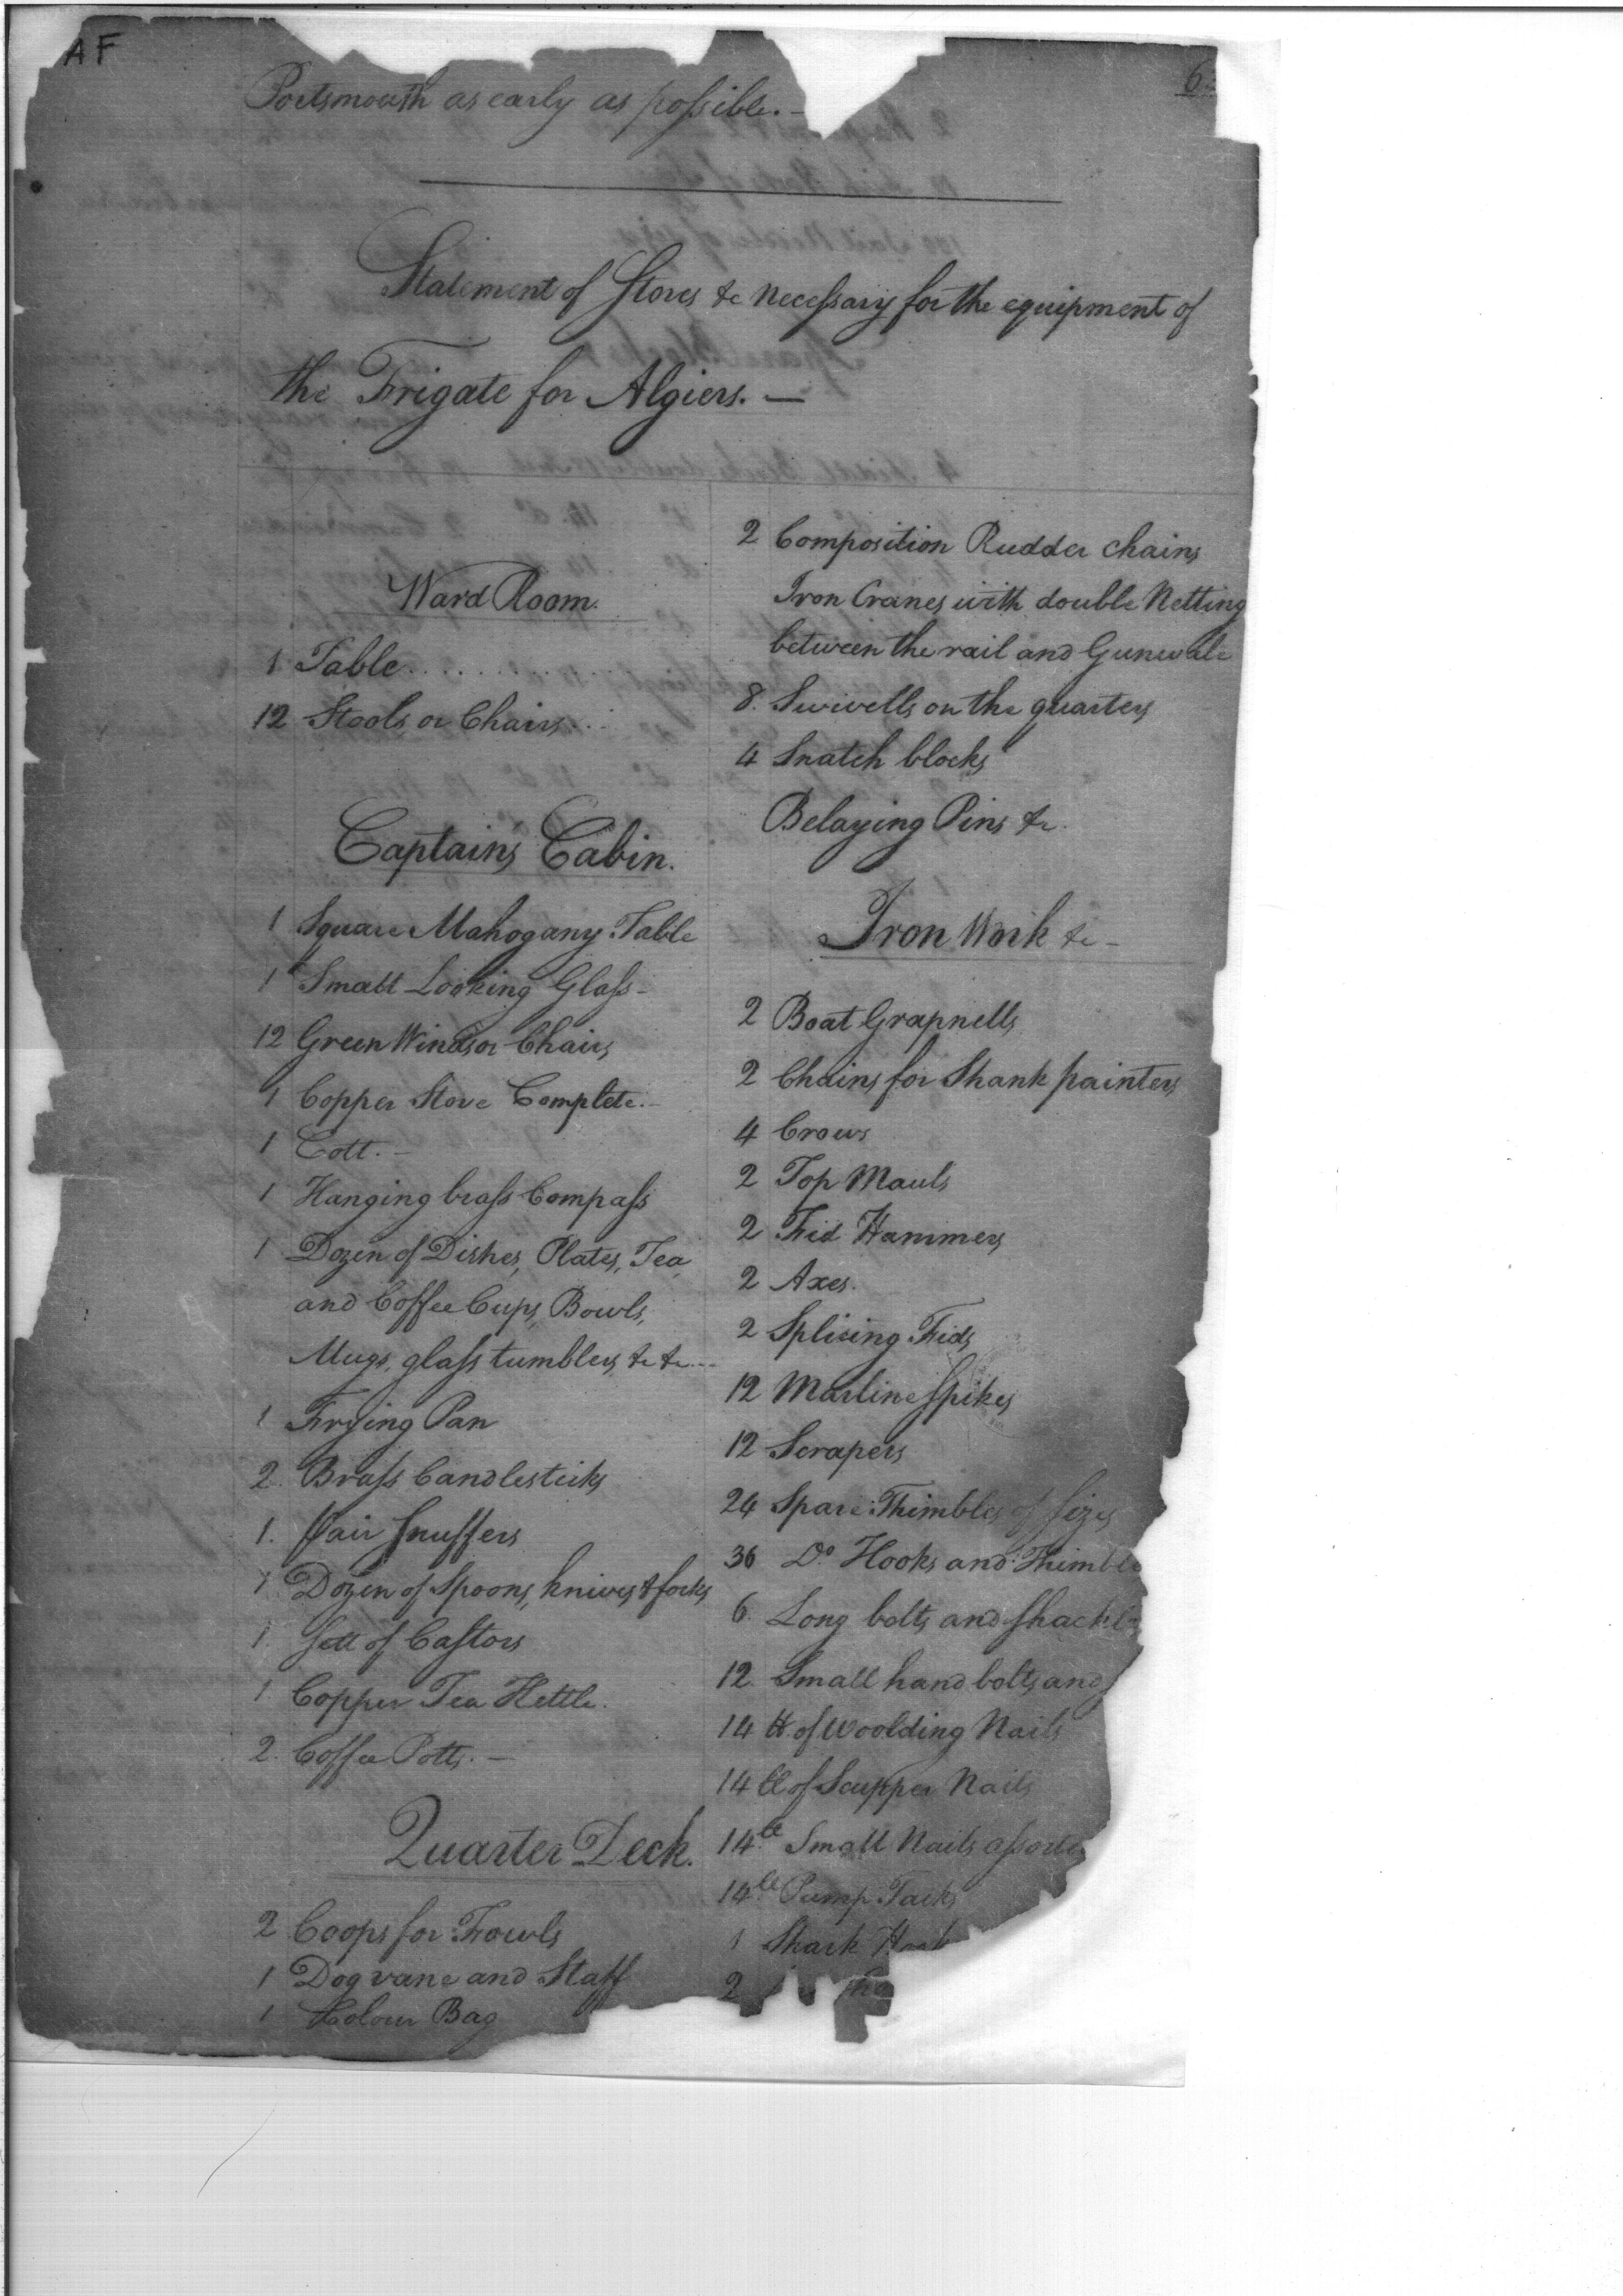 AF
6
Portsmouth as early as possible. -
Statement of Stores &c necessary for the equipment of
the Frigate for Algiers. —
Ward Room.
1 Table . . . . . . . . . .
12 Stools or Chairs . . .
Captain's Cabin.
1 Square Mahogany Table
1 Small Looking Glass -
12 Green Windsor Chairs
1 Copper Stove Complete. -
1 Cott. -
1 Hanging brass Compass
1 Dozen of Dishes, Plates, Tea
and Coffee Cups, Bowls,
Mugs, glass tumblers &c &c . . .
1 Frying Pan
2. Brass Candlesticks
1. Pair Snuffers
1 Dozen of Spoons, knives & forks
1. Sett of Castors
1. Copper Tea Kettle.
2. Coffee Potts. —
Quarter Deck.
2 Coops for Fowls
1 Dog vane and Staff
1 Colour Bag
2 Composition Rudder chains
Iron Cranes with double Netting
between the rail and Gunwale
8. Swivells on the quarters
4 Snatch blocks
Belaying Pins &c.
Iron Work &c -
2 Boat Grapnells
2 Chains for Shank painters
4 Crows
2 Top Mauls
2 Fid Hammers
2 Axes.
2 Splicing Fids
12 Marline Spikes
12 Scrapers
24 Spare Thimbles of sizes
36 Do. Hooks and Thimble
6. Long bolts and shackl
12. Small hand bolts and
14 lb of Woolding Nails
14 lb of Scupper Nails
14 lb Small Nails assorte
14 lb Pump Tacks
1 Shark Hook
2